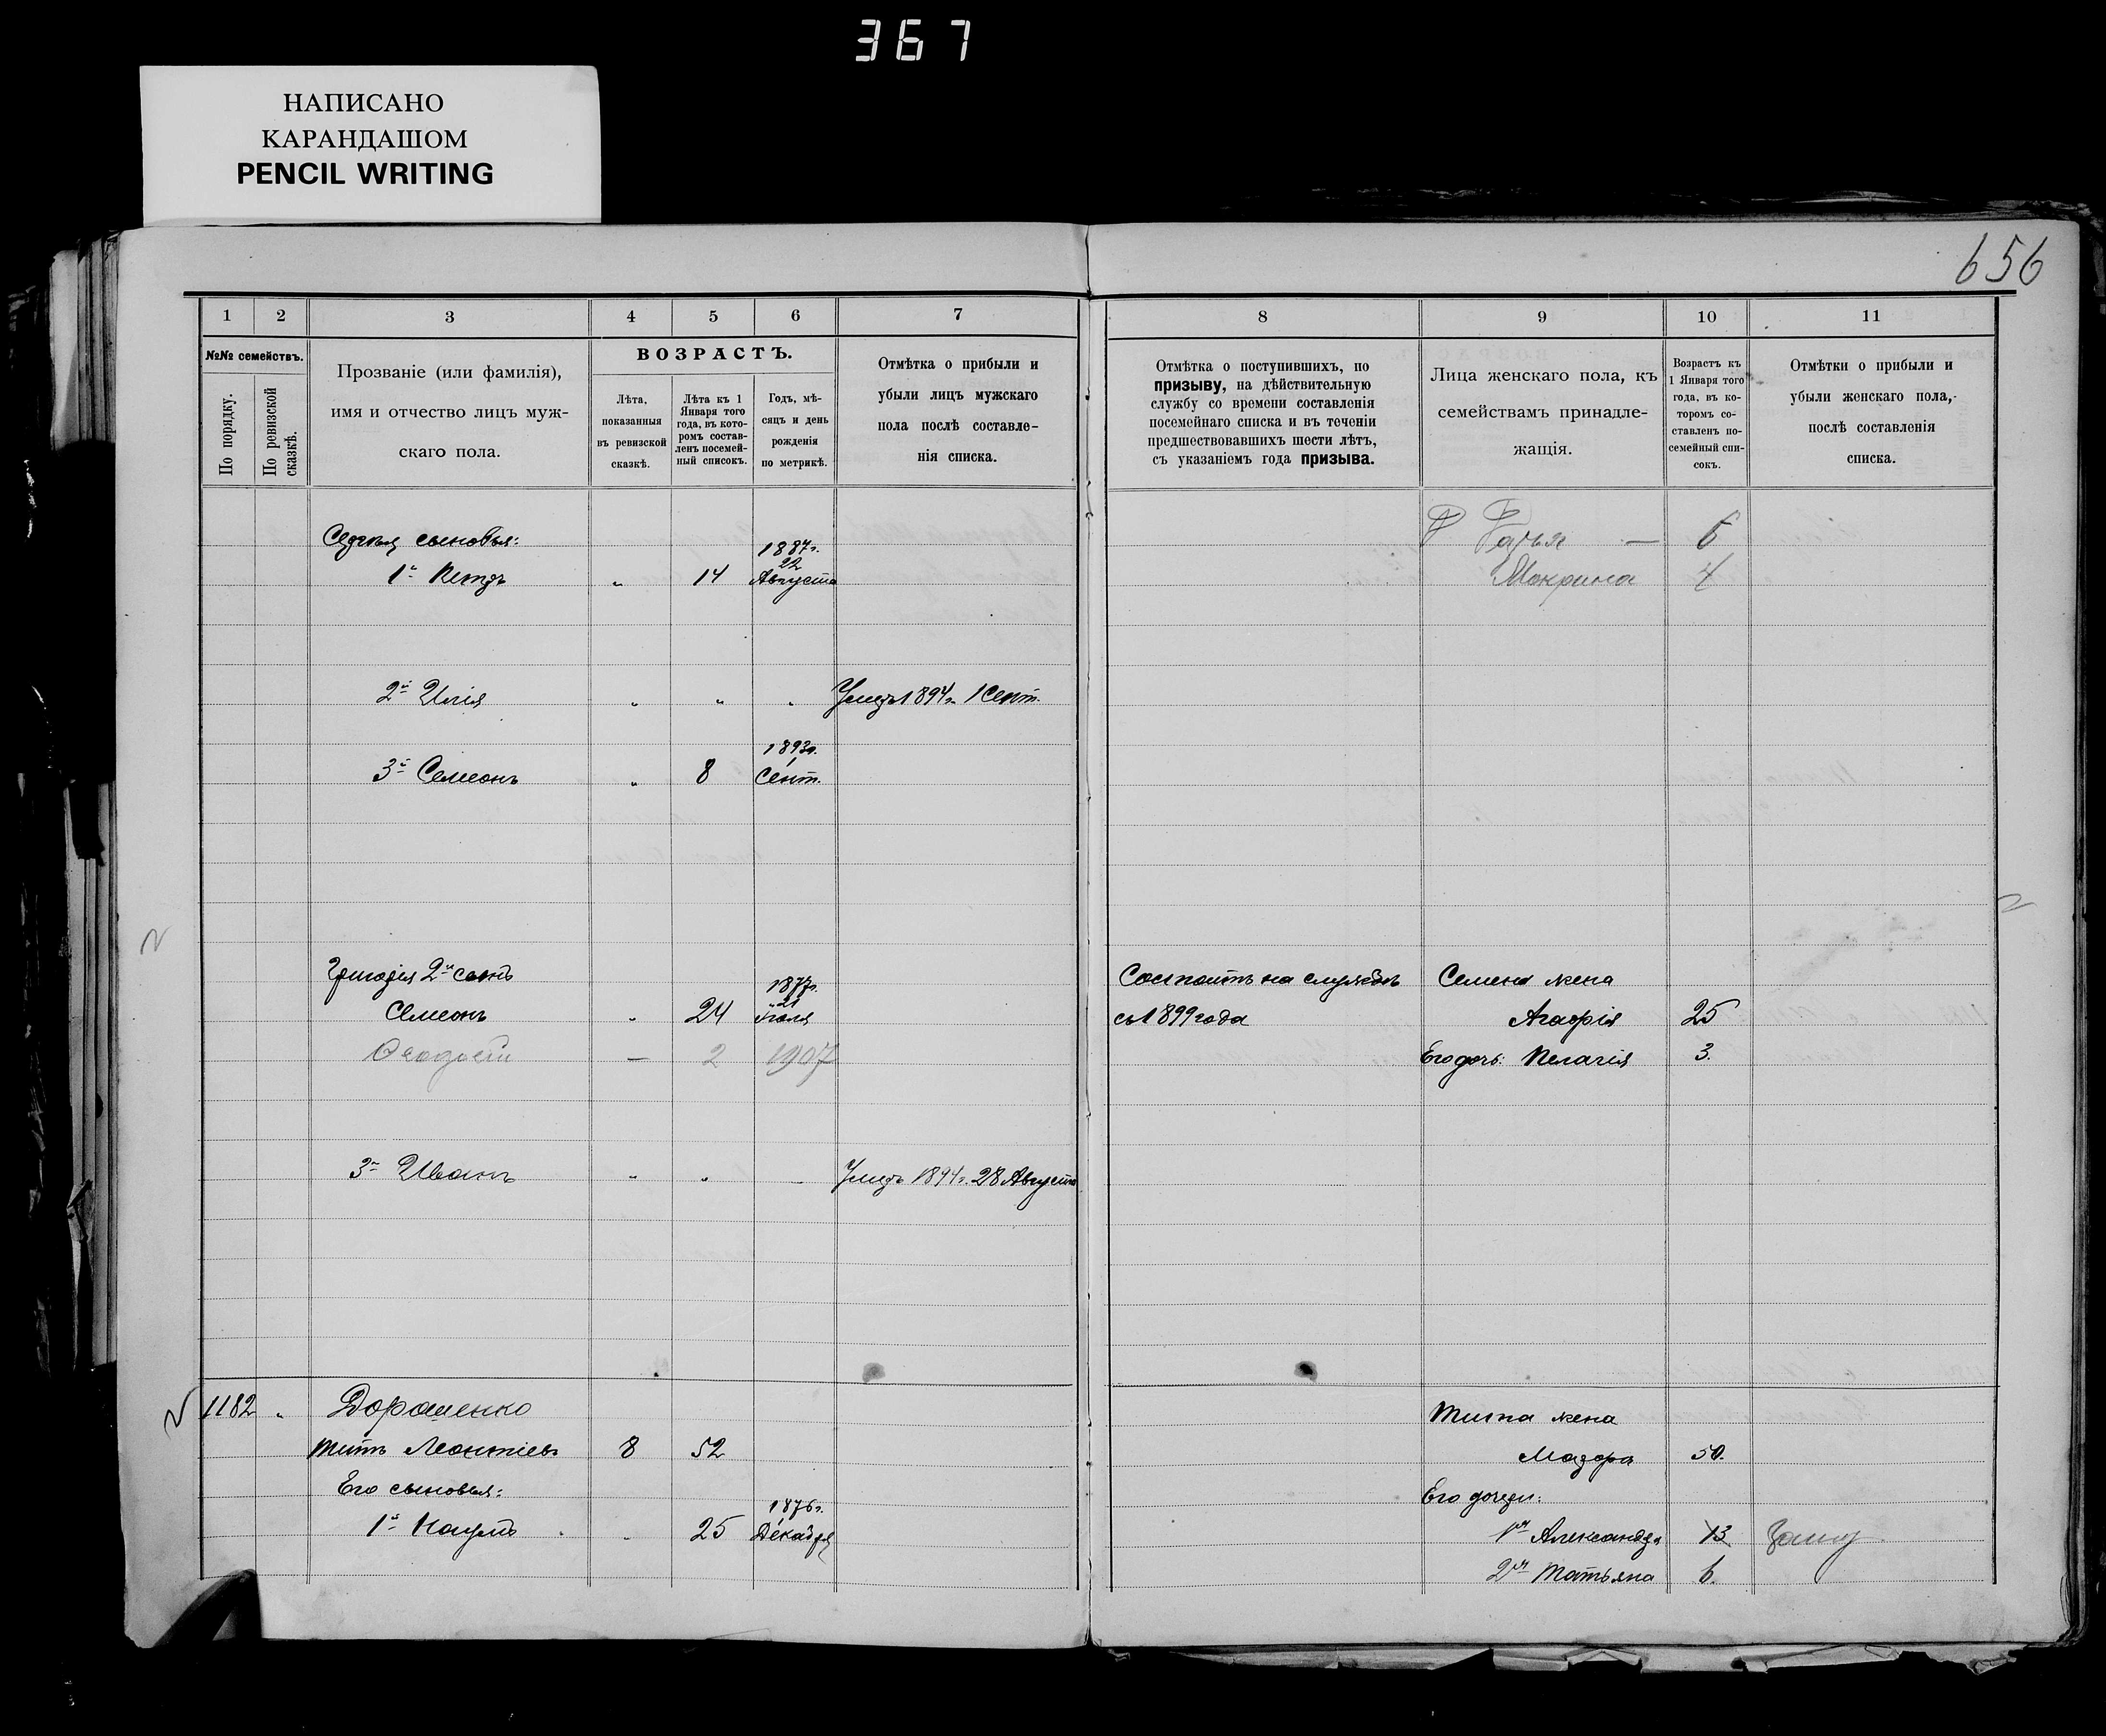 367
НАПИСАНО
КАРАНДАШОМ
PENCIL WRITING
656
1 2 3 4 5 6 7
№№ семействъ.
По порядку.
По ревизской сказкѣ.
Прозваніе (или фамилія),
имя и отчество лицъ муж-
скаго пола.
ВОЗРАСТЪ.
Лѣта,
показанныя
въ ревизской
сказкѣ.
Лѣта къ 1
Января того
года, въ кото-
ромъ состав-
ленъ посемей-
ный списокъ.
Годъ, мѣ-
сяцъ и день
рожденія
по метрикѣ.
Отмѣтка о прибыли и
убыли лицъ мужскаго
пола послѣ составле-
нія списка.
8 9 10 11
Отмѣтка о поступившихъ, по
призыву, на дѣйствительную
службу со времени составленія
посемейнаго списка и въ теченіи
предшествовавшихъ шести лѣтъ,
съ указаніемъ года призыва.
Лица женскаго пола, къ
семействамъ принадле-
жащія.
Возрастъ къ
1 Января того
года, въ ко-
торомъ со-
ставленъ по-
семейный спи-
сокъ.
Отмѣтки о прибыли и
убыли женскаго пола,
послѣ составленія
списка.
Сергѣя сыновья:
1887г.
22
1й Петръ " 14 Августа
2й Илія " " " Умеръ 1894г. 1 Сент.
1893г.
1
3й Семеонъ " 8 Сент.
Григорія 2й сынъ
1877г.
21
Семеонъ " 24 Іюля
2 1907
3й Иванъ " " - Умеръ 1894г. 28 Августа
1182 " Дорошенко
Титъ Леонтіевъ 8 52
Его сыновья:
1876г.
1
1й Наумъ " 25 Декабря
— 6
Макрина 4
Состоитъ на службѣ Семена жена
съ 1899 года Агафія 25
Его дочь: Пелагія 3.
Тита жена
Мавра 50.
Его дочери:
1я Александра 13 Замуж
2я Татьяна 6.